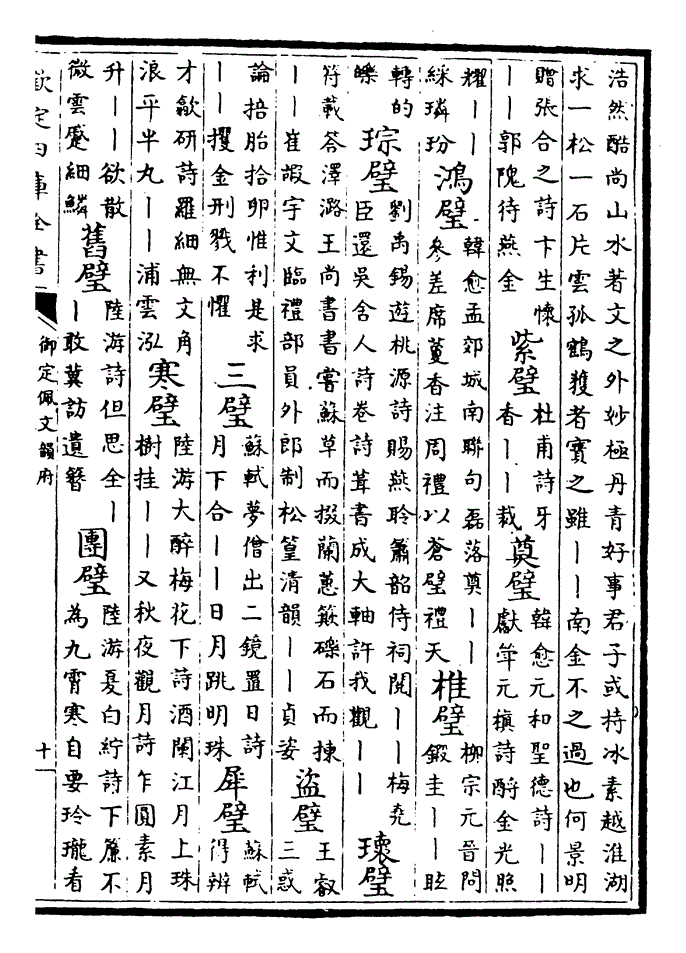 浩然酷尚山水著文之外妙極丹青好事君子或持冰素越淮湖
求一松一石片雲孤鶴獲者寶之雖丨丨南金不之過也何景明
贈張合之詩卞生懷
丨丨郭隗待燕金
紫璧
杜甫詩牙
香丨丨裁
奠璧
韓愈元和聖德詩丨丨
獻斝元稹詩酹金光照
耀丨丨
綵璘玢
鴻璧
韓愈孟郊城南聯句磊落奠丨丨
參差席蔓香注周禮以蒼璧禮天
椎璧
柳宗元晉問
鍛圭丨丨眩
轉的
皪
琮璧
劉禹錫遊桃源詩賜燕聆簫韶侍祠閱丨丨梅堯
臣還吳舍人詩卷詩葺書成大軸許我觀丨丨
瓌璧
符載答澤潞王尚書書嘗蘇草而掇蘭蕙簸礫石而揀
丨丨崔嘏宇文臨禮部員外郎制松篁清韻丨丨貞姿
盜璧
王叡
三惑
論掊胎拾卵惟利是求
丨丨攫金刑戮不懼
三璧
蘇軾夢僧出二鏡置日詩
月下合丨丨日月跳明珠
犀璧
蘇軾
得辨
才歙研詩羅細無文角
浪平半丸丨丨浦雲泓
寒璧
陸游大醉梅花下詩酒闌江月上珠
樹挂丨丨又秋夜觀月詩乍圓素月
升丨丨欲散
微雲蹙細鱗
舊璧
陸游詩但思全丨
丨敢冀訪遺簪
團璧
陸游憂白紵詩下簾不
為九霄寒自要玲瓏看
欽定四庫全書
御定佩文韻府
十